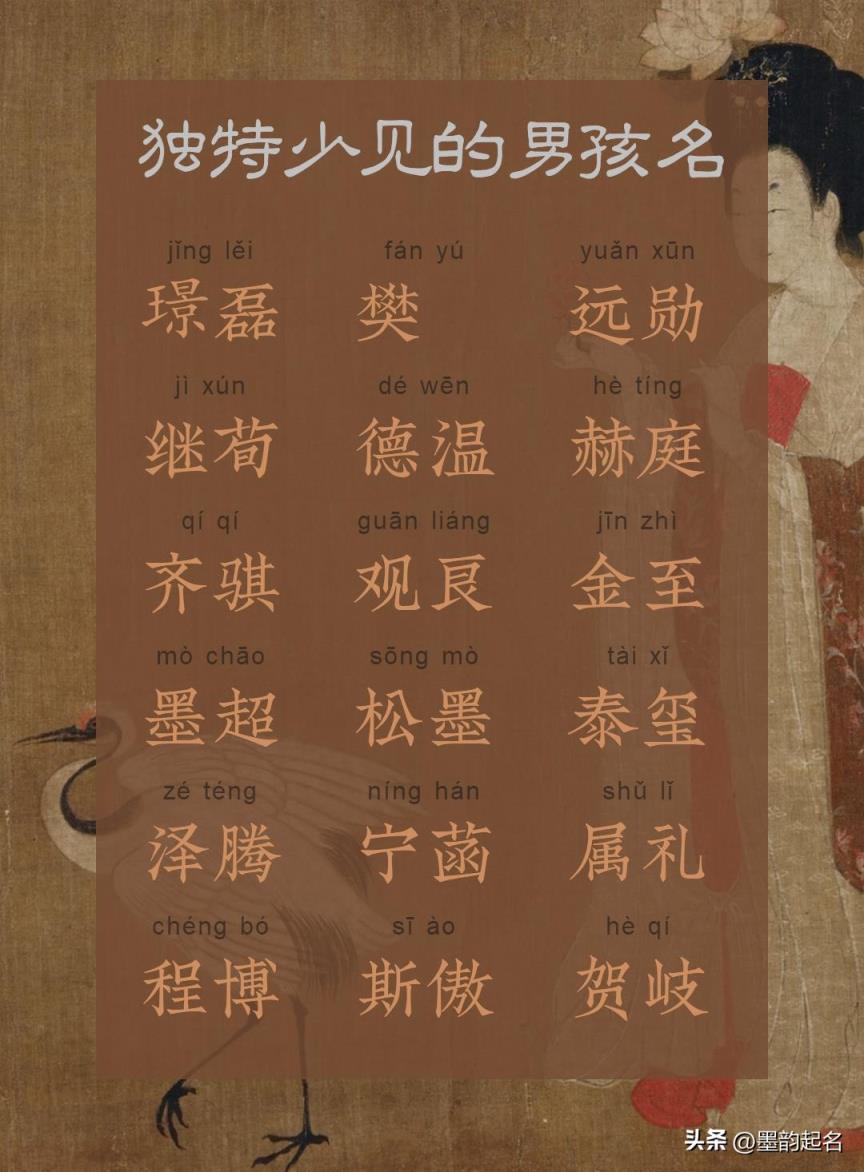 独特少见的男孩名
jǐng lěi fán yú yuǎn xūn
璟磊 樊 远勋
jì xún dé wēn hè tíng
继荀 德温 赫庭
qí qí guān liáng jīn zhì
齐骐 观良 金至
mò chāo sōng mò tài xǐ
墨超 松墨 泰玺
zé téng níng hán shǔ lǐ
泽腾 宁菡 属礼
chéng bó sī ào hè qí
程博 斯傲 贺岐
头条 @墨韵起名